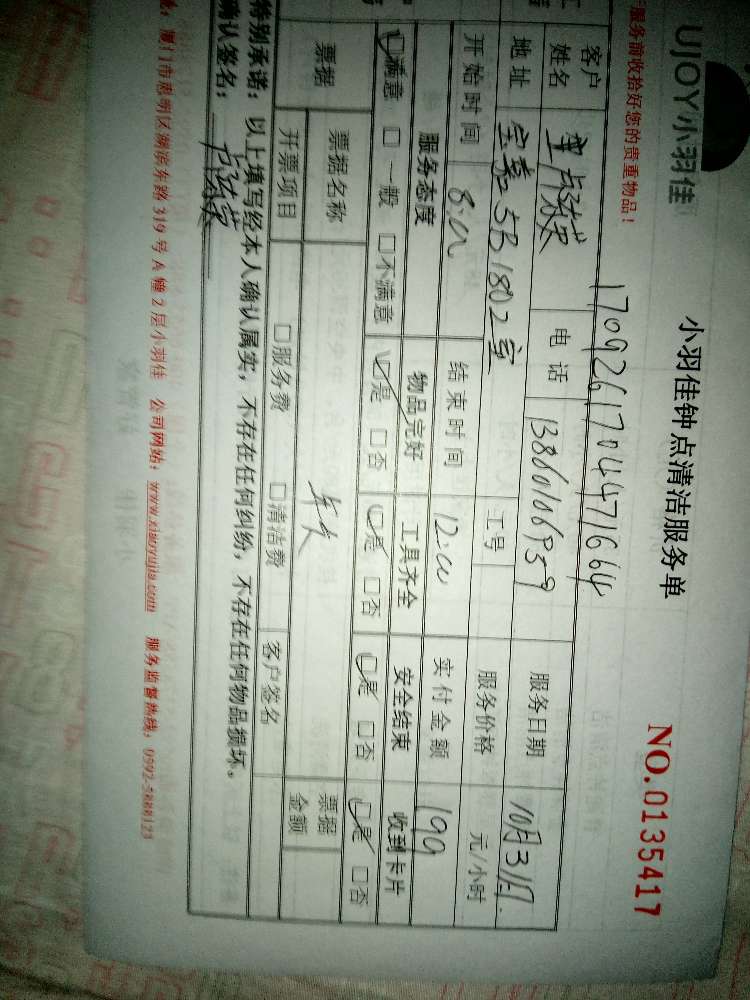 UJOY小羽佳
小羽佳钟点清洁服务单
NO.0135417
服务前收拾好您的贵重物品!
17092617044471664
客户姓名 电话 服务日期 10月31日
地址 宝嘉5B1802室 工号 服务价格 元/小时
开始时间 8:00 结束时间 12:00 实付金额 199
服务态度 物品完好 工具齐全 安全结束 收到卡片
☑满意 □一般 □不满意 ☑是 □否 ☑是 □否 ☑是 □否 ☑是 □否
票据 票据名称 票据金额
开票项目 □服务费 □清洁费 客户签名
特别承诺:以上填写经本人确认属实,不存在任何纠纷,不存在任何物品损坏。
确认签名:
厦门市思明区湖滨东路319号A幢2层小羽佳 公司网站:www.xiaoyujia.com 服务监督热线:0592-5888123